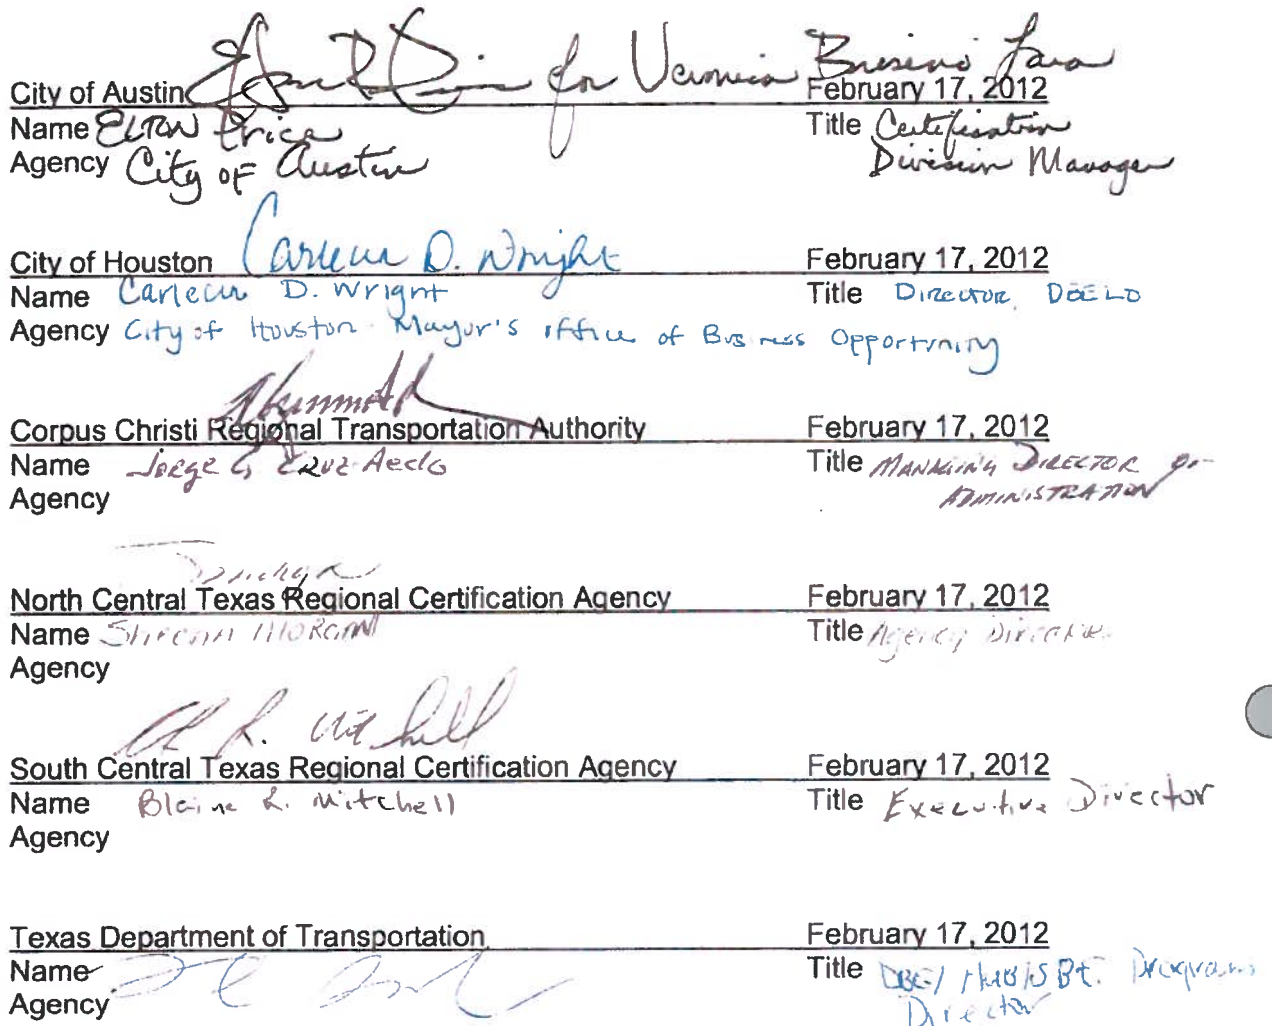 City of Austin for Veronica Briseño Lara February 17, 2012
Name Elton Price Title Certification
Agency City of Austin Division Manager
City of Houston Carlecia D. Wright February 17, 2012
Name Carlecia D. Wright Title Director,
Agency City of Houston Mayor's Office of Business Opportunity
Corpus Christi Regional Transportation Authority February 17, 2012
Name Jorge G. Cruz-Aedo Title Managing Director of
Agency Administration
North Central Texas Regional Certification Agency February 17, 2012
Name Sheena Morgan Title Agency Director
Agency
South Central Texas Regional Certification Agency February 17, 2012
Name Blaine R. Mitchell Title Executive Director
Agency
Texas Department of Transportation February 17, 2012
Name Title DBE/HUB/SBE Programs
Agency Director